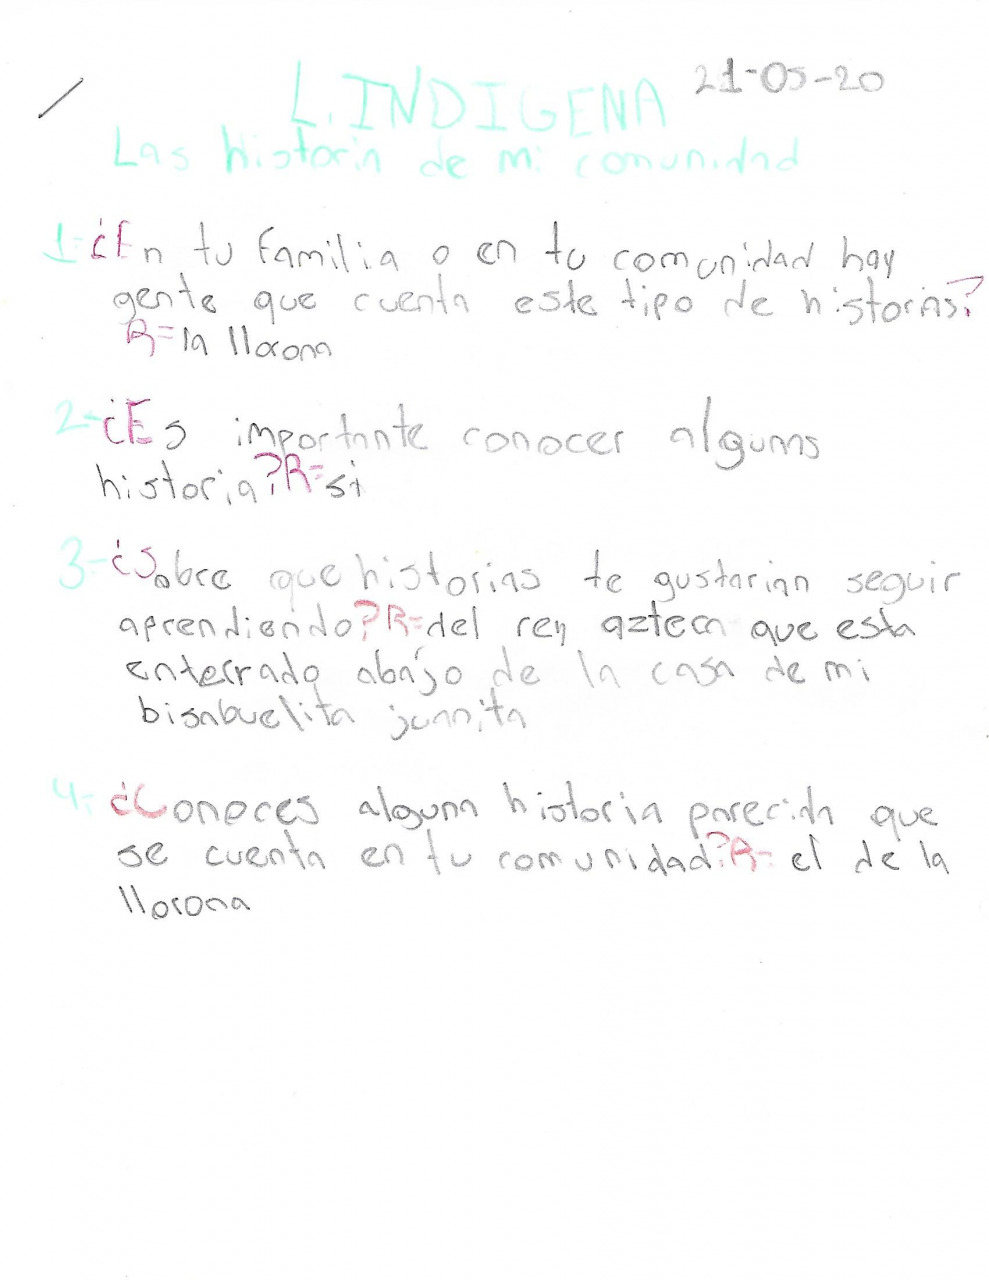 L. INDIGENA 21-05-20
Las historia de mi comunidad
1- ¿En tu familia o en tu comunidad hay
gente que cuenta este tipo de historias?
R= la llorona
2- ¿Es importante conocer algunas
historia? R= si
3- ¿Sobre que historias te gustarian seguir
aprendiendo? R= del rey azteca que esta
enterrado abajo de la casa de mi
bisabuelita juanita
4- ¿Conoces alguna historia parecida que
se cuenta en tu comunidad? R= el de la
llorona